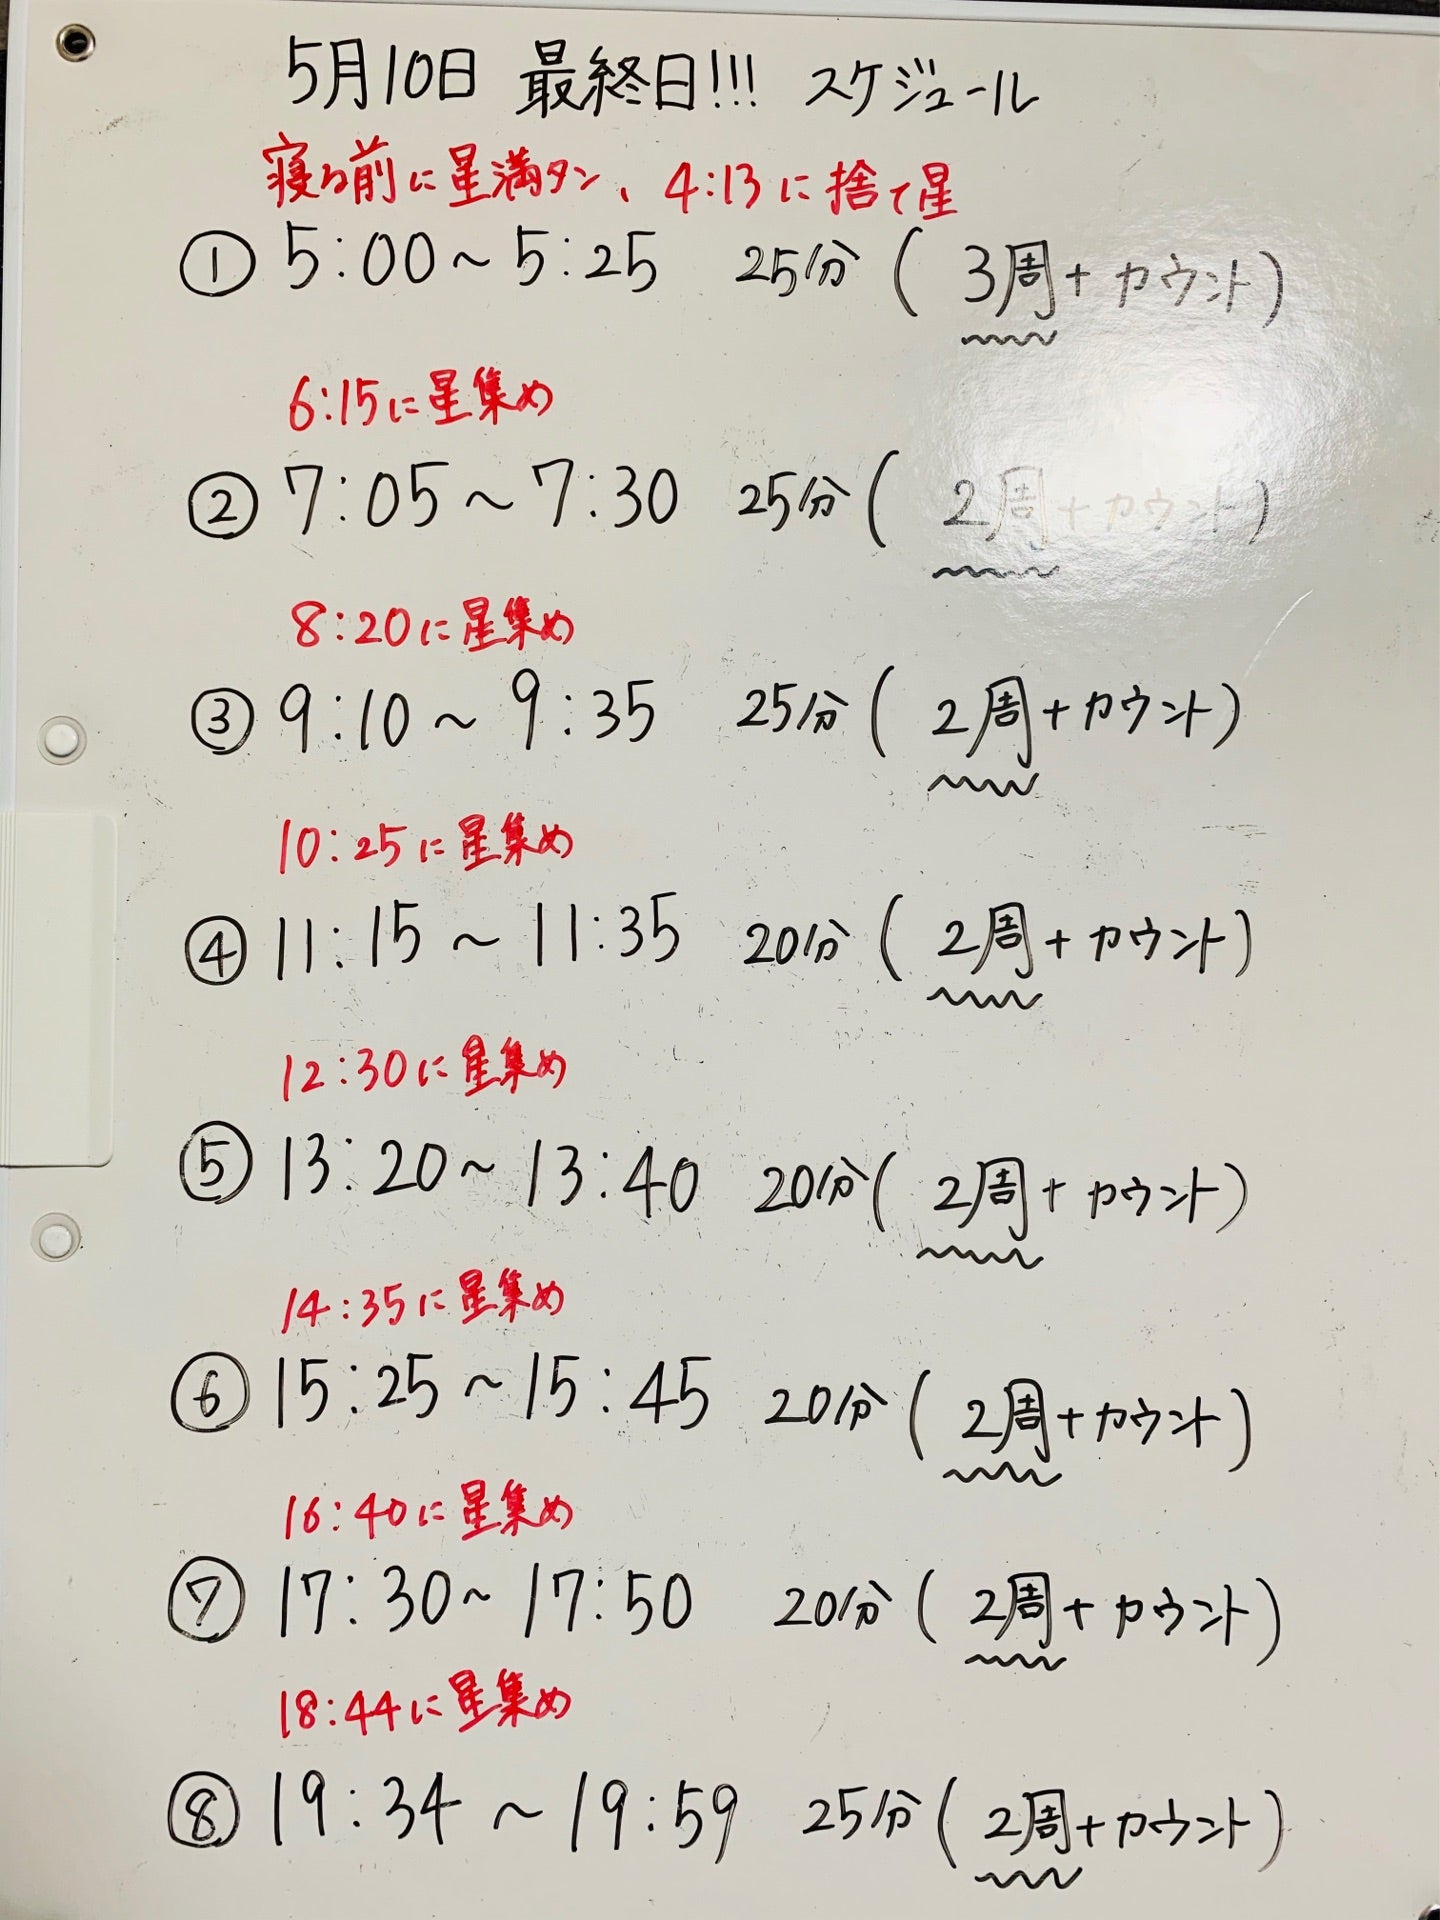 5月10日 最終日!!! スケジュール
寝る前に星満タン、4:13に捨て星
① 5:00~5:25 25分(3周+カウント)
6:15に星集め
② 7:05~7:30 25分(2周+カウント)
8:20に星集め
③ 9:10~9:35 25分(2周+カウント)
10:25に星集め
④ 11:15~11:35 20分(2周+カウント)
12:30に星集め
⑤ 13:20~13:40 20分(2周+カウント)
14:35に星集め
⑥ 15:25~15:45 20分(2周+カウント)
16:40に星集め
⑦ 17:30~17:50 20分(2周+カウント)
18:44に星集め
⑧ 19:34~19:59 25分(2周+カウント)